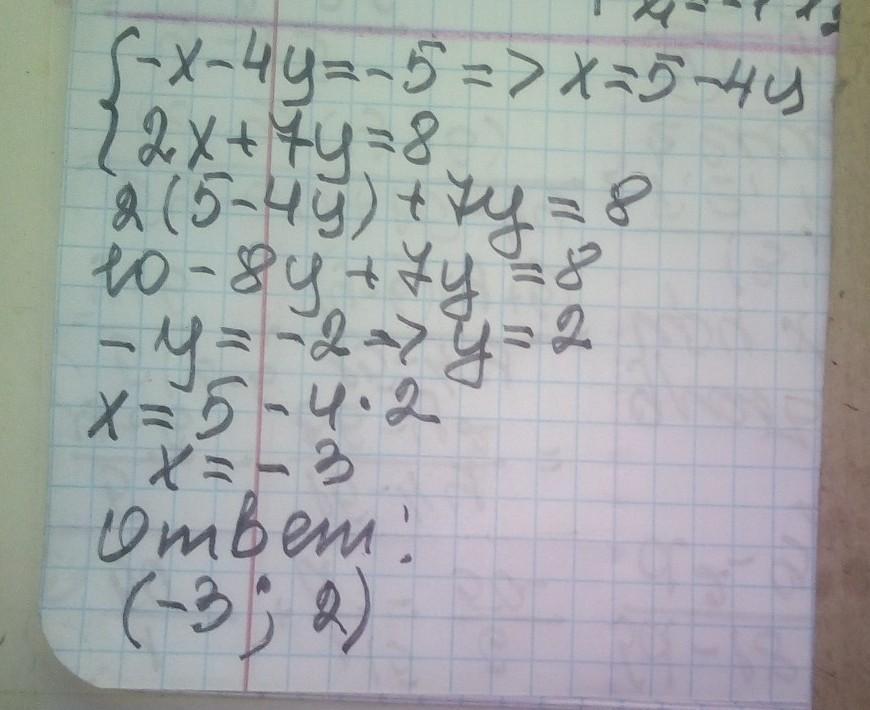 {-x-4y=-5=>x=5-4y
2x+7y=8
2(5-4y)+7y=8
10-8y+7y=8
-y=-2->y=2
x=5-4·2
x=-3
Ответ:
(-3; 2)